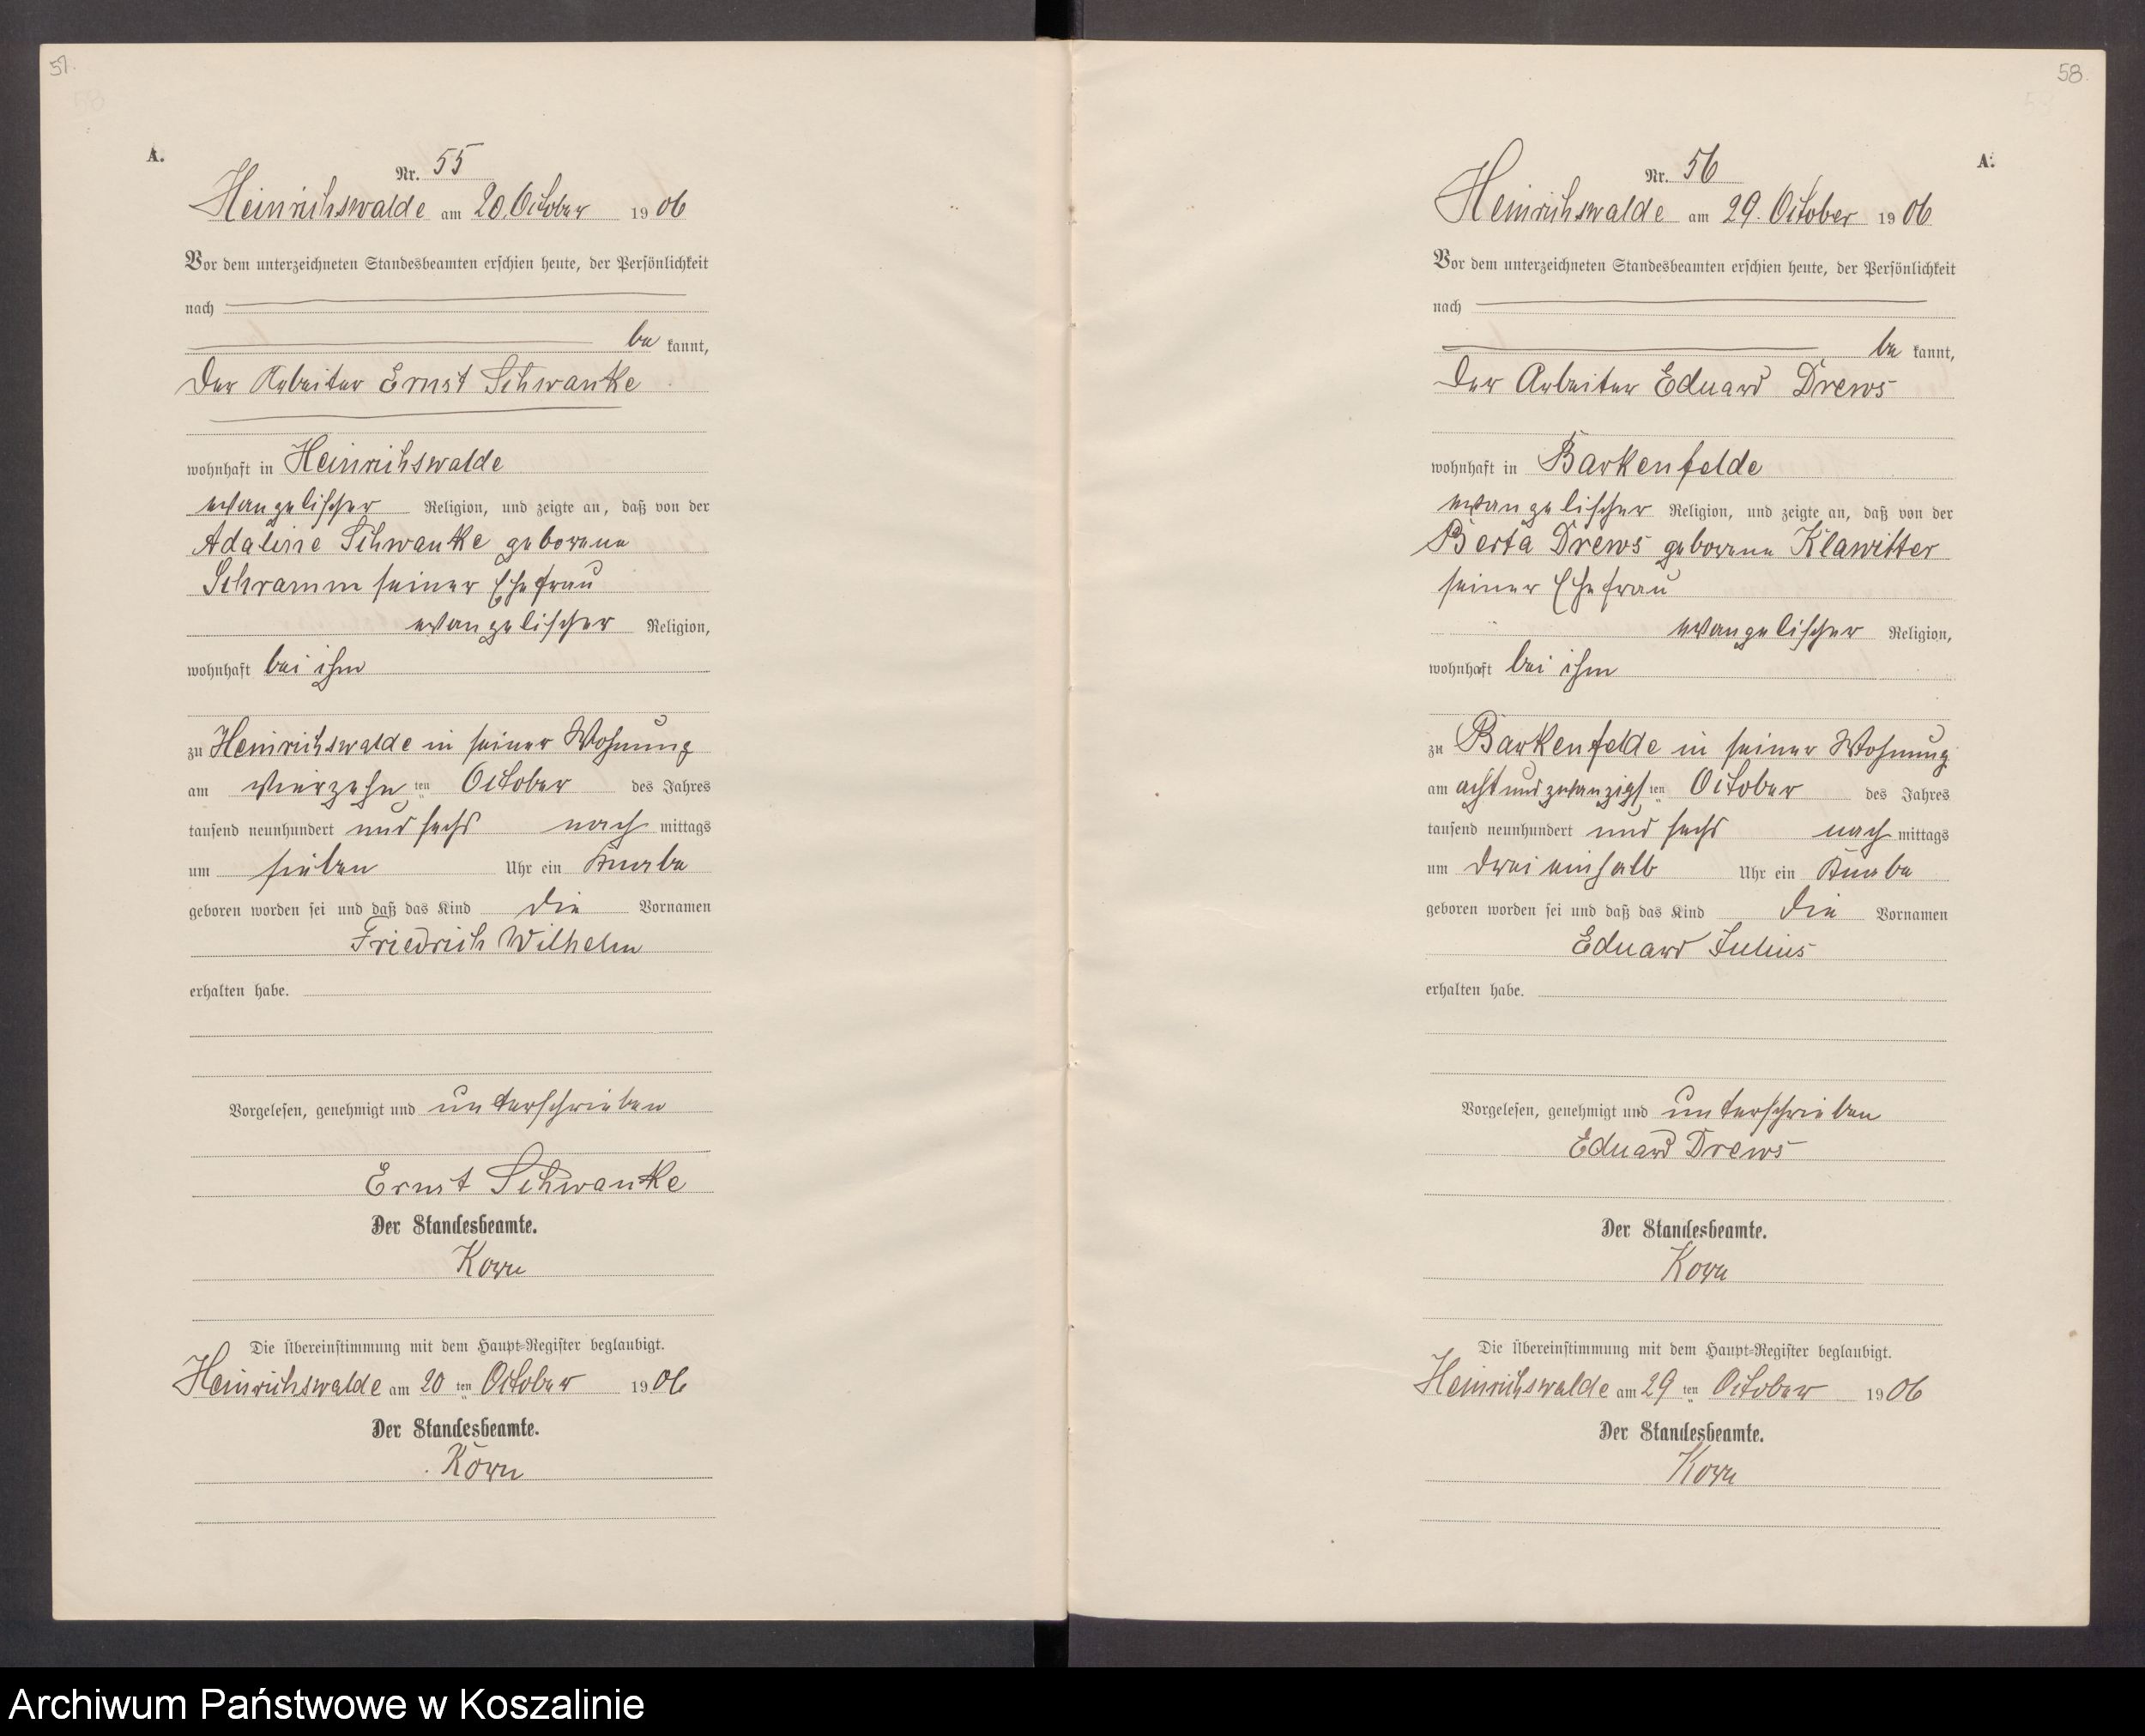 57.
A.
Nr. 55
Heinrichswalde am 20. October 1906
Vor dem unterzeichneten Standesbeamten erschien heute, der Persönlichkeit
nach
be kannt,
der Arbeiter Ernst Schwanke
wohnhaft in Heinrichswalde
evangelischer Religion, und zeigte an, daß von der
Adaline Schwanke geborene
Schramm seiner Ehefrau
evangelischer Religion,
wohnhaft bei ihm
zu Heinrichswalde in seiner Wohnung
am vierzehn ten October des Jahres
tausend neunhundert und sechs nach mittags
um sieben Uhr ein Knabe
geboren worden sei und daß das Kind die Vornamen
Friedrich Wilhelm
erhalten habe.
Vorgelesen, genehmigt und unterschrieben
Ernst Schwanke
Der Standesbeamte.
Korn
Die Übereinstimmung mit dem Haupt-Register beglaubigt.
Heinrichswalde am 20 ten October 1906
Der Standesbeamte.
Korn
58.
A.
Nr. 56
Heinrichswalde am 29. October 1906
Vor dem unterzeichneten Standesbeamten erschien heute, der Persönlichkeit
nach
be kannt,
der Arbeiter Eduard Drews
wohnhaft in Barkenfelde
evangelischer Religion, und zeigte an, daß von der
Berta Drews geborene Klawitter
seiner Ehefrau
evangelischer Religion,
wohnhaft bei ihm
zu Barkenfelde in seiner Wohnung
am achtundzwanzigs ten October des Jahres
tausend neunhundert und sechs nach mittags
um drei einhalb Uhr ein Knabe
geboren worden sei und daß das Kind die Vornamen
Eduard Julius
erhalten habe.
Vorgelesen, genehmigt und unterschrieben
Eduard Drews
Der Standesbeamte.
Korn
Die Übereinstimmung mit dem Haupt-Register beglaubigt.
Heinrichswalde am 29 ten October 1906
Der Standesbeamte.
Korn
Archiwum Państwowe w Koszalinie